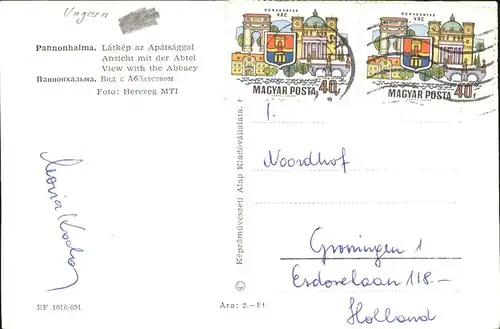 Ungarn
Pannonhalma. Látkép az Apátsággal
Ansicht mit der Abtel
View with the Abbaey
Паннонхальма. Вид с Аббатством
Foto: Herczeg MTI
EF 1010/691
Képzőművészeti Alap Kiadóvállalata,
Ára: 2.-Ft
DUNAKANYAR
VÁC
MAGYAR POSTA 40f
DUNAKANYAR
VÁC
MAGYAR POSTA 40f
Noordhof
Groningen 1
Esdoornlaan 118.-
Holland